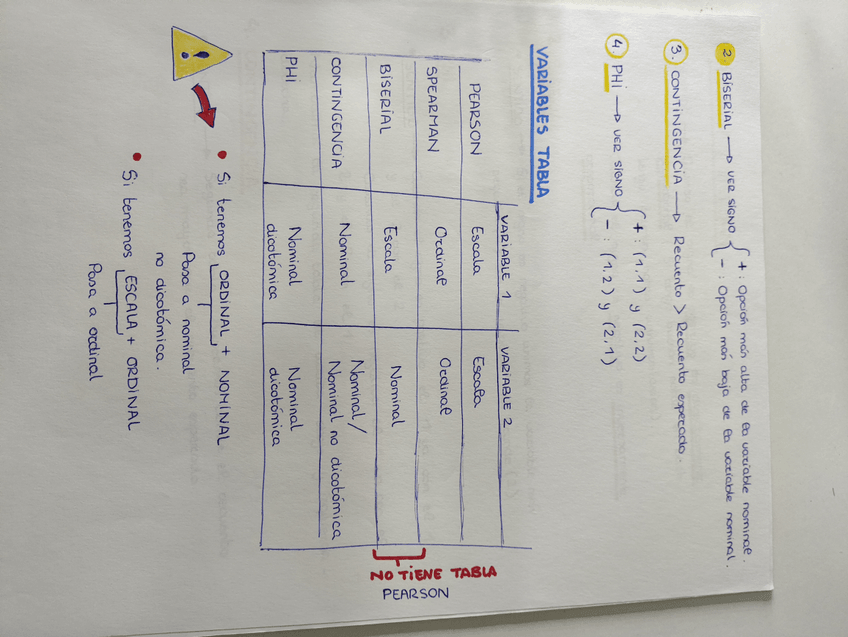 2. BISERIAL → VER SIGNO { + : Opción más alta de la variable nominal.
- : Opción más baja de la variable nominal.
3. CONTINGENCIA → Recuento > Recuento esperado.
4. PHI → VER SIGNO { + : (1,1) y (2,2)
- : (1,2) y (2,1)
VARIABLES TABLA
VARIABLE 1 VARIABLE 2
PEARSON Escala Escala
SPEARMAN Ordinal Ordinal
BISERIAL Escala Nominal
CONTINGENCIA Nominal Nominal/
Nominal no dicotómica
PHI Nominal Nominal
dicotómica dicotómica
NO TIENE TABLA
PEARSON
!
• Si tenemos ORDINAL + NOMINAL
Pasa a nominal
no dicotómica.
• Si tenemos ESCALA + ORDINAL
Pasa a ordinal